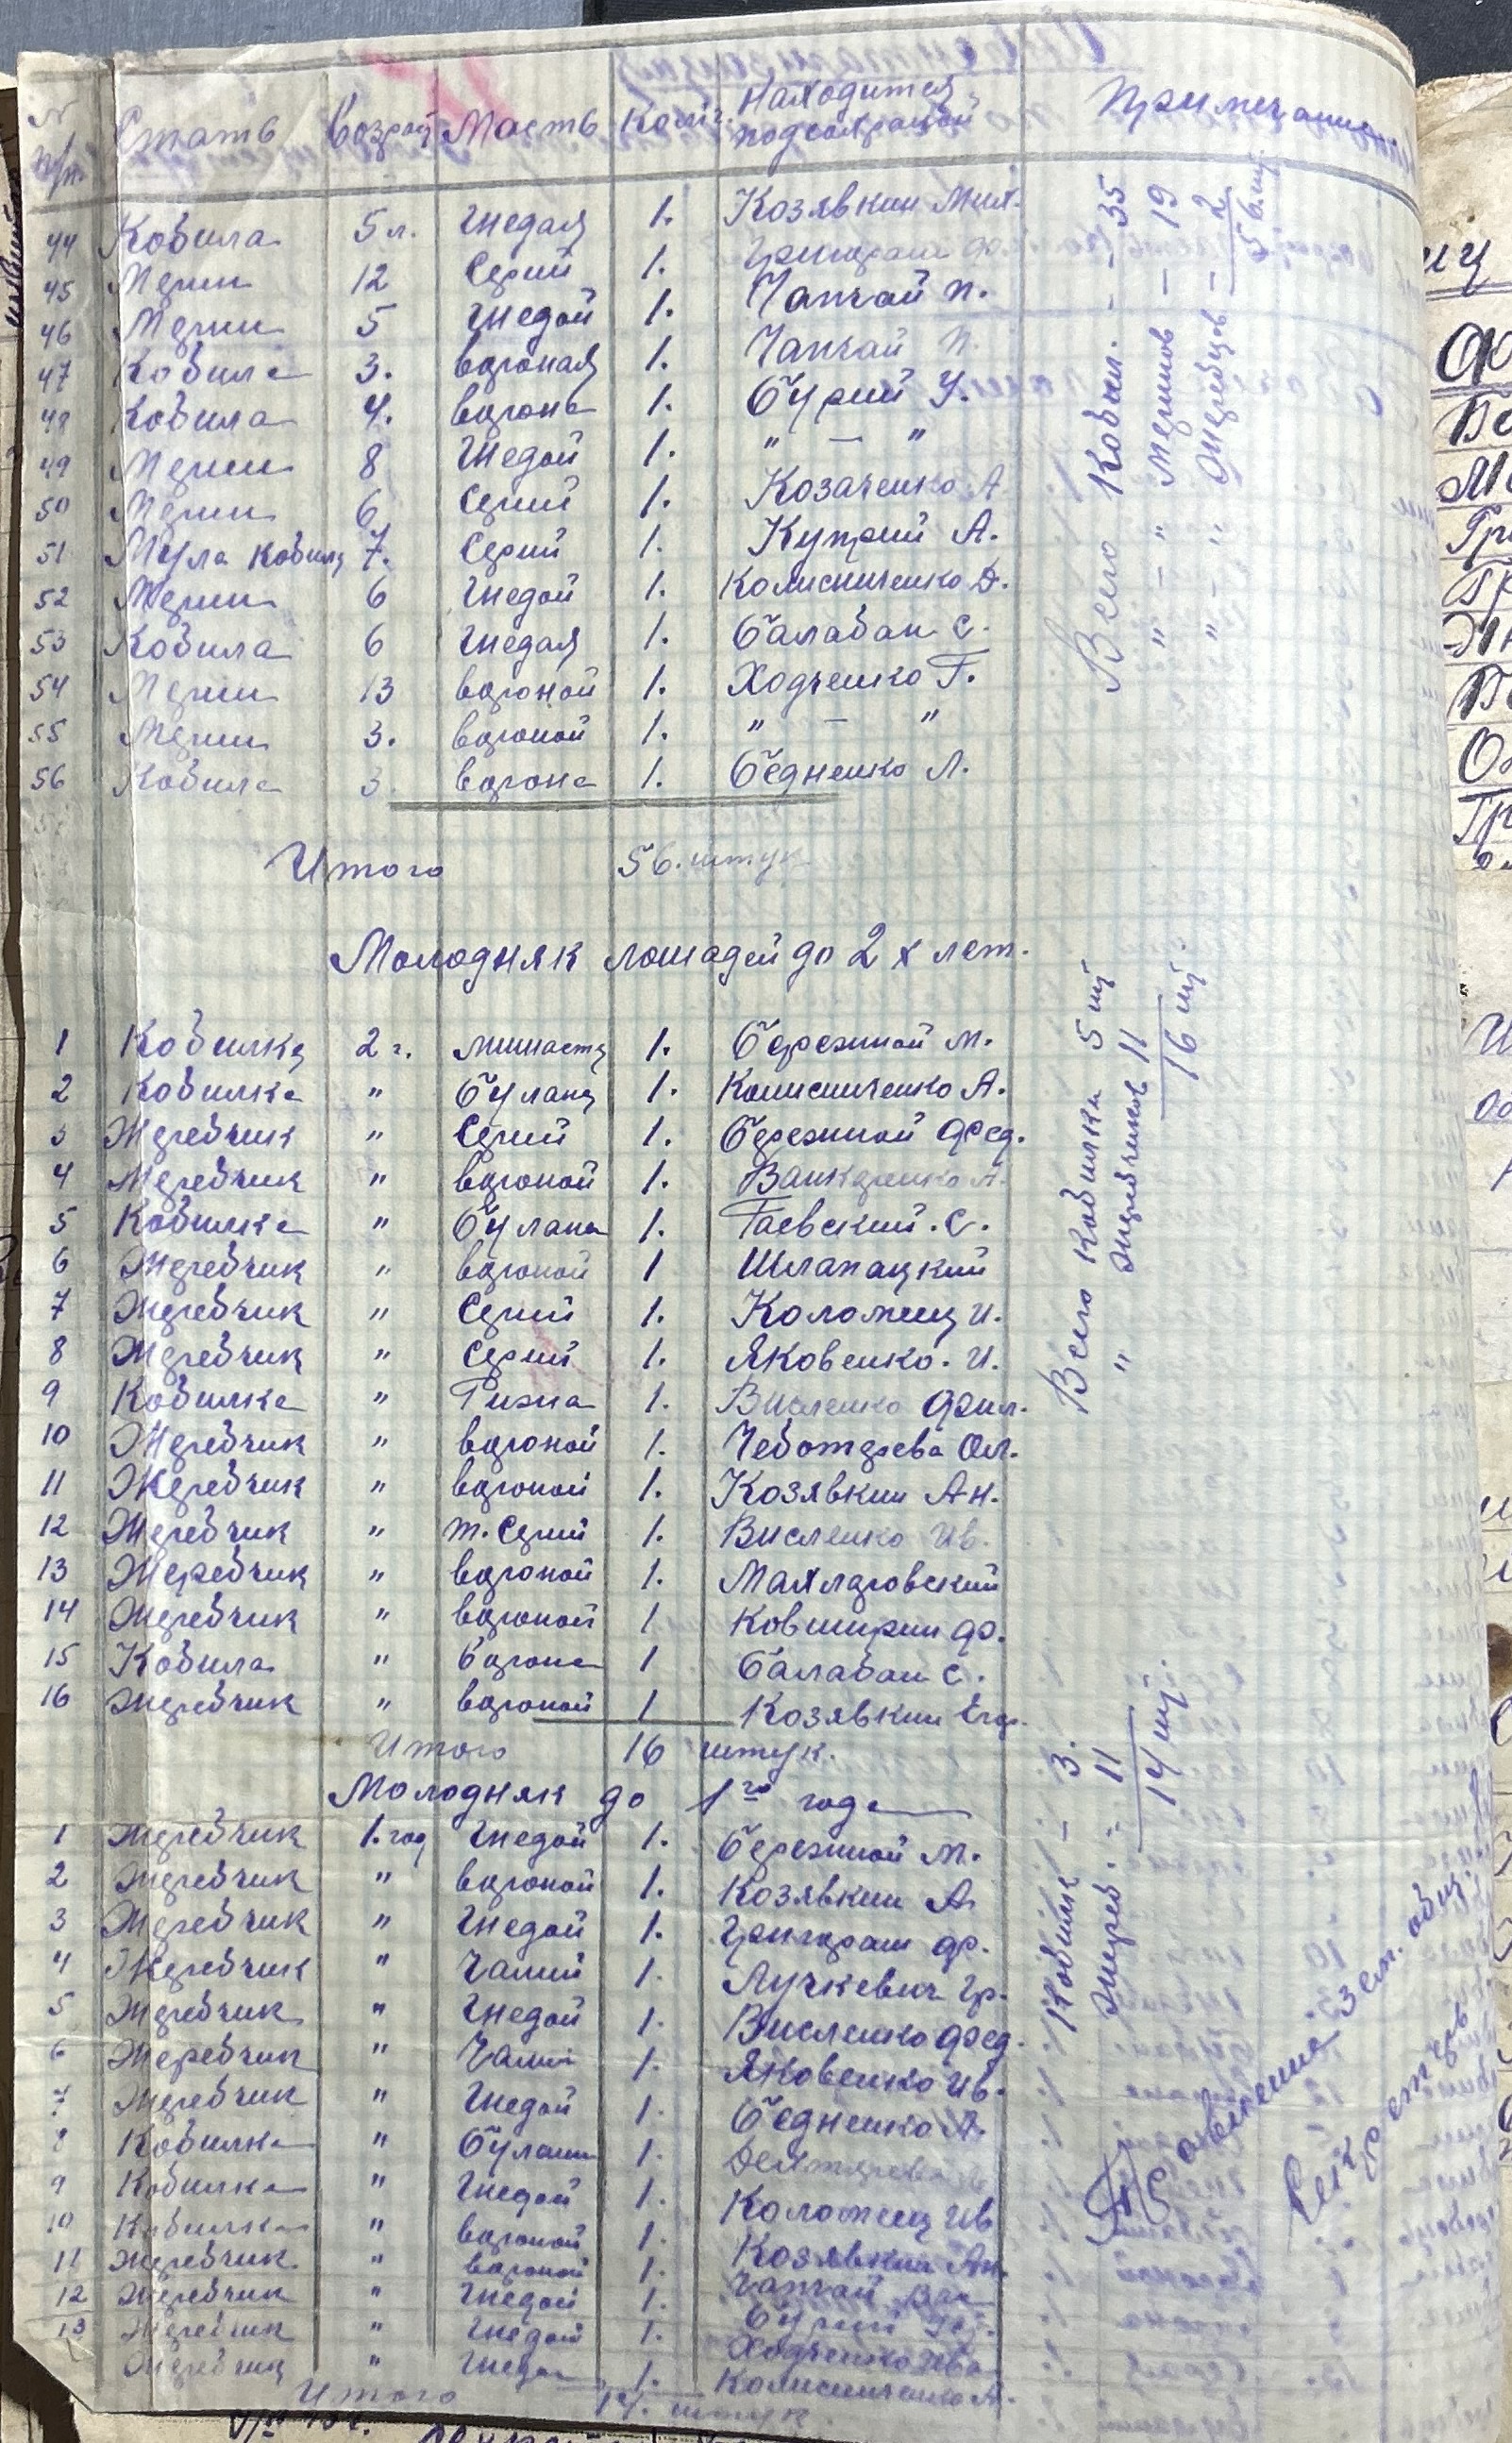 № п/п. Стать Возраст Масть Колич. Находится под охраной Примечание
44 Кобила 5 л. Гнедая 1. Козявкин Мих.
45 Мерин 12 Серий 1. Григораш Ф.
46 Мерин 5 Гнедой 1. Чапчай П.
47 Кобила 3. вороная 1. Чапчай П.
48 Кобила 4. ворона 1. Бурий У.
49 Мерин 8 Гнедой 1. " — "
50 Мерин 6 Серий 1. Козаченко А
51 Мула Кобила 7. Серий 1. Куприй А.
52 Мерин 6 Гнедой 1. Колисниченко Д.
53 Кобила 6 Гнедая 1. Балабан С.
54 Мерин 13 вороной 1. Ходченко Г.
55 Мерин 3. вороной 1. " — "
56 Кобила 3. ворона 1. Бедненко Л.
Итого 56. штук
Всего Кобил. - - 35
" - " Меринов - 19
" - " Жеребцов - 2
56 шт.
Молодняк лошадей до 2х лет.
1 Кобилка 2 г. мишаста 1. Бережной М.
2 Кобилка " Булана 1. Колисниченко А.
3 Жеребчик " Серий 1. Бережной Фед.
4 Жеребчик " вороной 1. А.
5 Кобилка " Булана 1. Гаевский. С.
6 Жеребчик " вороной 1 Шлапацкий
7 Жеребчик " Серий 1. Коломиец И.
8 Жеребчик " Серий 1. Яковенко. И.
9 Кобилка " Рижа 1. Висленко Фил.
10 Жеребчик " вороной 1. Чеботарева Ол.
11 Жеребчик " вороной 1. Козявкин Ан.
12 Жеребчик " т. Серий 1. Висленко Ив.
13 Жеребчик " вороной 1. Махляровский
14 Жеребчик " вороной 1 Ковширин Ф.
15 Кобила " Ворона 1 Балабан С.
16 Жеребчик " вороной 1 Козявкин Егор.
Итого 16 штук.
Всего Кобилки 5 шт
" Жеребчиков 11
16 шт.
Молодняк до 1го года
1 Жеребчик 1. год Гнедой 1. Бережной М.
2 Жеребчик " вороной 1. Козявкин А.
3 Жеребчик " Гнедой 1. Григораш Ф.
4 Жеребчик " Чалий 1. Лучкевич Гр.
5 Жеребчик " Гнедой 1. Висленко Фед.
6 Жеребчик " Чалий 1. Яковенко Ив.
7 Жеребчик " Гнедой 1. Бедненко А.
8 Кобилка " Булана 1. Дехтярева
9 Кобилка " Гнедой 1. Коломиец Ив
10 Кобилка " вороной 1. Козявкин Ан.
11 Жеребчик " вороной 1. Чапчай
12 Жеребчик " Гнедой 1. Бурий
13 Жеребчик " Гнедой 1. Ходченко Ива
Жеребчик " Гнедой 1. Колисниченко А.
Итого 14. штук.
Кобилки - 3.
Жереб. " 11
14 шт.